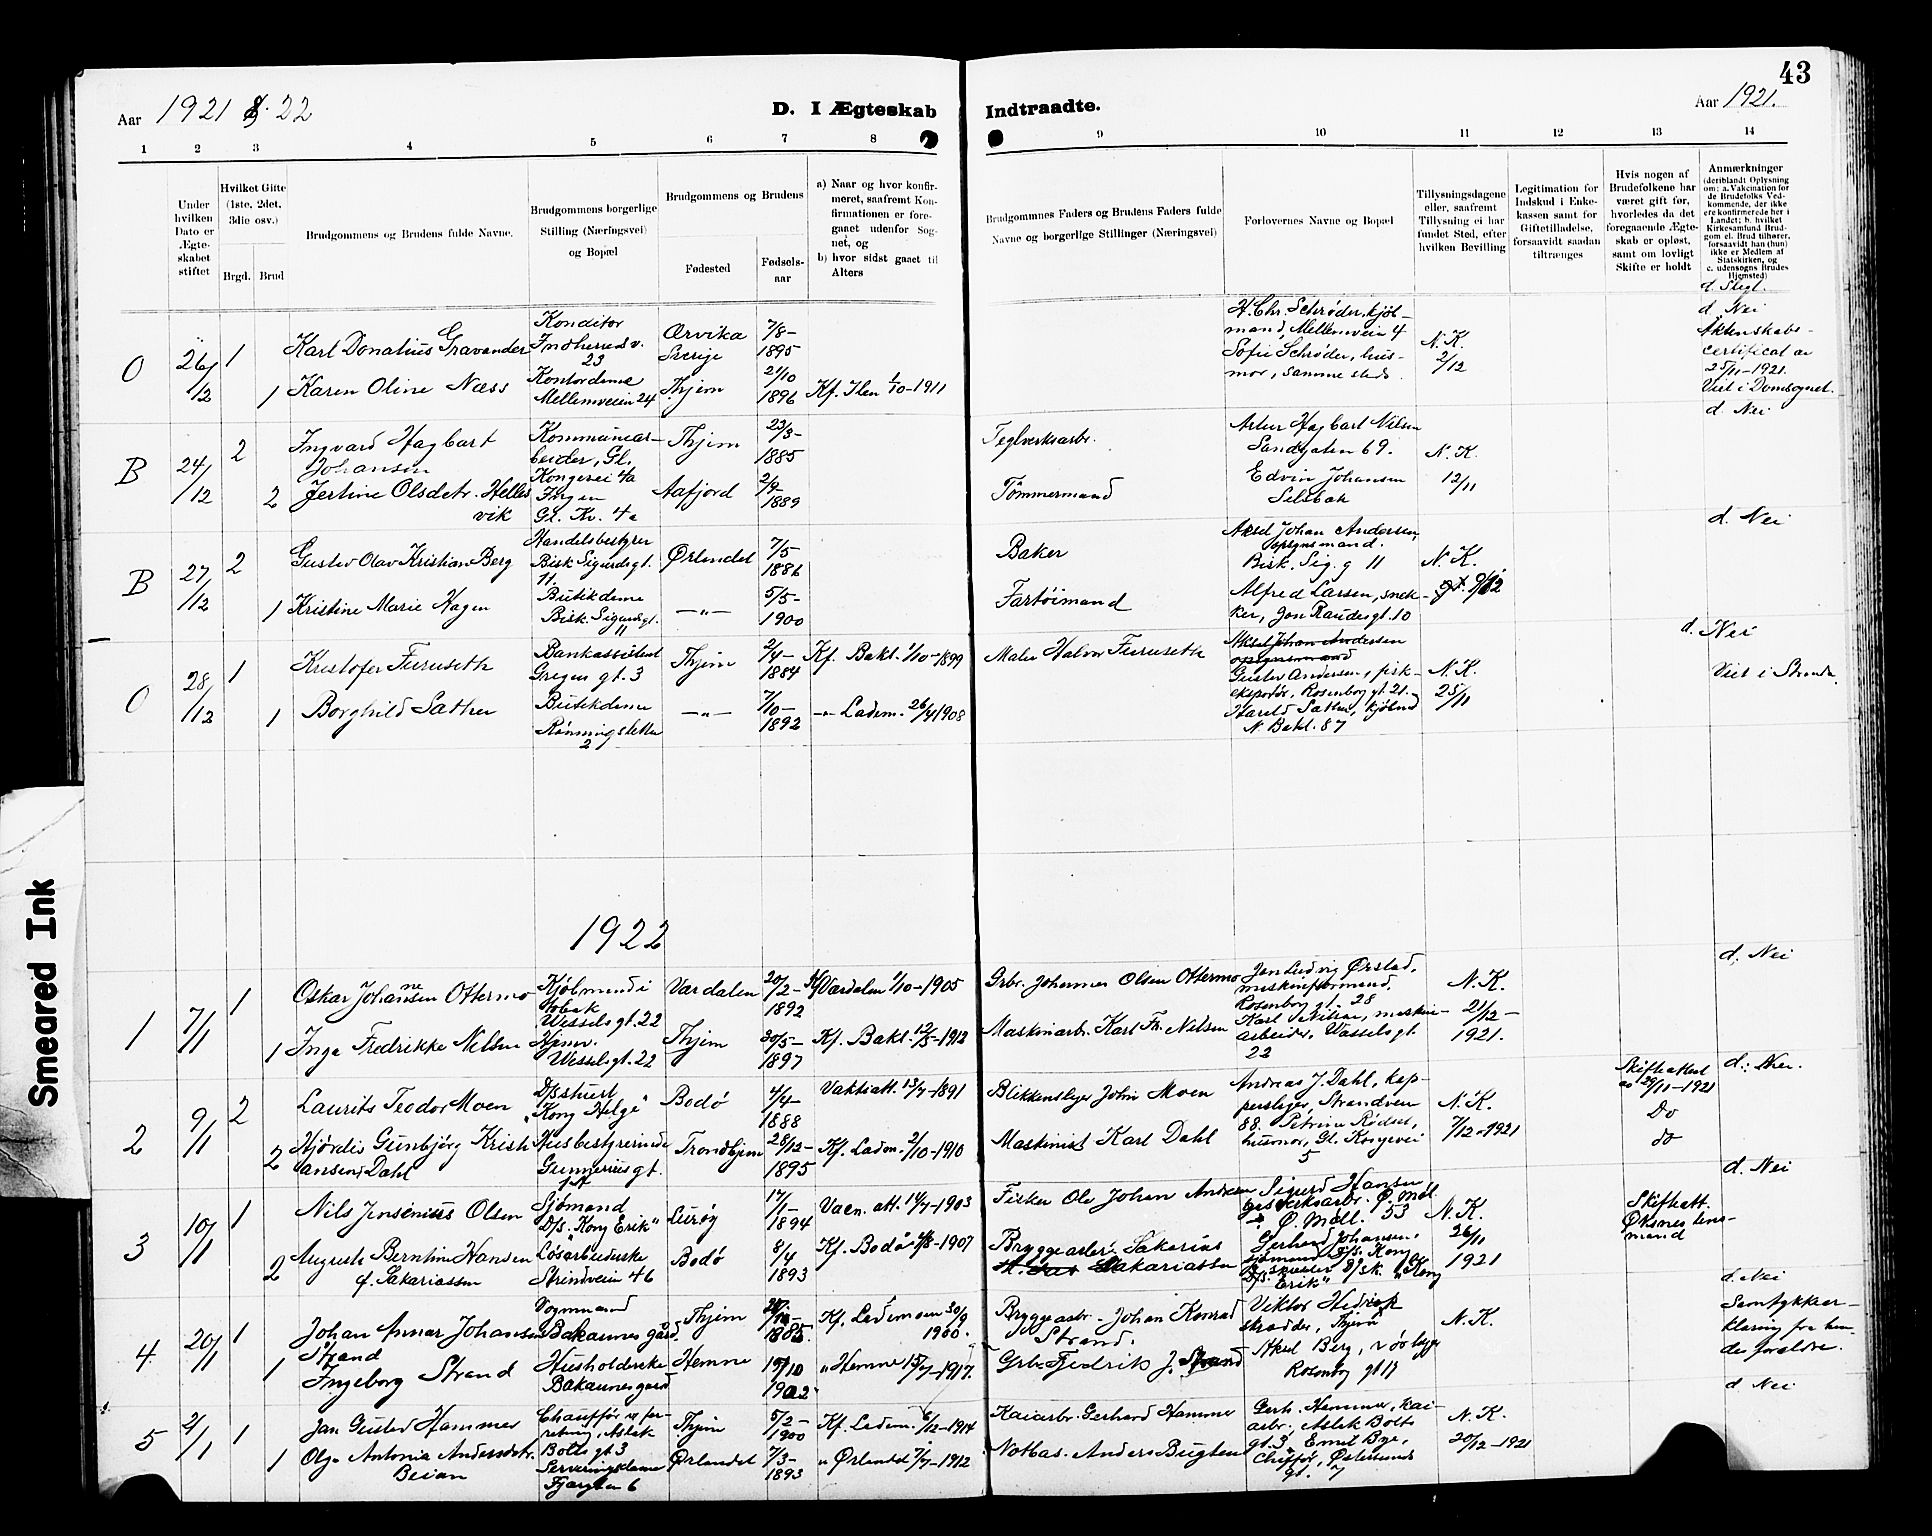 43
Aar 1921 & 22
D. I Ægteskab
Indtraadte.
Aar 1921.
1 2 3 4 5 6 7 8 9 10 11 12 13 14
Under hvilken Dato er Ægteskabet stiftet
Hvilket Gifte (1ste, 2det, 3die osv.)
Brgd. Brud
Brudgommens og Brudens fulde Navne.
Brudgommens borgerlige Stilling (Næringsvei) og Bopæl
Brudgommens og Brudens
Fødested
Fødselsaar
a) Naar og hvor konfirmeret, saafremt Konfirmationen er foregaaet udenfor Sognet, og
b) hvor sidst gaaet til Alters
Brudgommnes Faders og Brudens Faders fulde Navne og borgerlige Stillinger (Næringsvei)
Forlovernes Navne og Bopæl
Tillysningsdagene eller, saafremt Tillysning ei har fundet Sted, efter hvilken Bevilling
Legitimation for Indskud i Enkekassen samt for Giftetilladelse, forsaavidt saadan tiltrænges
Hvis nogen af Brudefolkene har været gift før, hvorledes da det foregaaende Ægteskab er opløst, samt om lovligt Skifte er holdt
Anmærkninger
(deriblandt Oplysning om: a. Vakcination for de Brudefolks Vedkommende, der ikke ere konfirmerede her i Landet; b. hvilket Kirkesamfund Brudgom el. Brud tilhører, forsaavidt han (hun) ikke er Medlem af Statskirken, og c. udensogns Brudes Hjemsted)
d. Slegt.
O 26/12 1 Karl Donatius Gravander
Konditor
Indherredsv. 23
Arvika
Sverige
7/8-1895
H. Chr. Schrøder, kjøbmand, Mellemveien 4
Sofie Schrøder, husmor, samme steds.
N. K.
2/12
d. Nei
Äktenskabscertificat av
25/11-1921.
Viet i Domsognet.
1 Karen Oline Næss
Kontordame
Mellemveien 24
Thjem
21/10 1896
Kf. Ilen 1/10-1911
B 24/12 2 Ingvard Hagbart Johansen
Kommunearbeider, Gl. Kongevei 4a
Thjem
23/3-1885
Teglverksarb.
Artur Hagbart Nilsen
Sandgaten 69.
Edvin Johansen
Selsbak
N. K.
12/11
d. Nei
2 Jertine Olsdatr. Hellesvik
Ingen
Gl. Kv. 4a
Aafjord
2/9-1889
Tømmermand
B 27/12 2 Gustav Olav Kristian Berg
Handelsbestyrer
Bisk. Sigurdsgt. 11.
Ørlandet
7/5-1886
Baker
Aksel Johan Andersen
opsynsmand.
Bisk. Sig. g 11
Alfred Larsen, snekker, Jon Raudesgt. 10
N. K.
9/12
d. Nei
1 Kristine Marie Hagen
Butikdame
Bisk. Sigurdsgt. 11
—"—
5/5-1900
Fartøimand
O 28/12 1 Kristofer Furuseth
Bankassistent
Gregus gt. 3
Thjem
2/4-1884
Kf. Bakl. 1/10-1899
Maler Halvor Furuseth
Aksel Johan Andersen
opsynsmand
Gustav Andersen, fiskeksportør, Rosenborg gt. 21.
Harald Sather, kjøbmd
N. Bakl. 87
N. K.
25/11
d. Nei
Viet i Strinda.
1 Borghild Sather
Butikdame
Rønningsletta 2
—"—
7/10-1892
—"— Ladem. 26/4 1908
1922
1 7/1 1 Oskar Johannesen Ottermo
Kjøbmand i tobak
Wesselsgt. 22
Værdalen
20/2-1892
Kf. Værdalen 1/10-1905
Grbr. Johannes Olsen Ottermo
Jon Ludvig Ørstad,
maskinformand.
Rosenborg gt. 28
Karl Nilsen, maskinarbeider, Wesselsgt. 22
N. K.
21/12-1921.
d. Nei
1 Inga Fredrikke Nelsen
Hjemv.
Wesselsgt. 22
Thjem
30/5-1897
Kf. Bakl. 12/5-1912
Maskinarb. Karl Fr. Nilsen
2 9/1 2 Laurits Teodor Moen
D/s stuert
"Kong Helge"
Bodø
4/4-1888
Vaksatt. 13/7-1891
Blikkenslager John Moen
Andreas J. Dahl, kobberslager, Strandveien 88.
Petrine Rødset, husmor, Gl. Kongevei 5
N. K.
7/12-1921
Skifteattest av 29/11-1921
Do
do
d.: Nei.
2 Hjørdis Gunbjørg Kristiansen, Dahl
Husbestyrerinde
Gunnerusgt. 1A
Trondhjem
28/12-1895
Kf. Ladem. 2/10-1910
Maskinist Karl Dahl
3 10/1 1 Nils Jensenius Olsen
Sjømand
D/s. "Kong Erik"
Lurøy
17/1-1894
Vacn. att. 14/7-1903
Fisker Ole Johan Andreas
Sigurd Hansen
gasverksarb. Ø. Møl.
Ø. Møll. 53
Gerhard Johansen,
sjømand D/s. "Kong Erik"
N. K.
26/11 1921
Skifteatt.
Øksnes lensmand
d. Nei
2 Auguste Berntine Hansen
f. Sakariassen
Løsarbeiderske
Strindveien 46
Bodø
8/4 1893
Kf. Bodø 4/8-1907
Bryggearbr. Sakarias Sakariassen
4. 20/1 1 Johan Annar Johansen Strand
Vognmand
Bakaunes gård
Thjem
1885
Kf. Lademoen 30/9 1900.
Bryggearbr. Johan Konrad Strand.
Viktor Hedrek
skrædder, Thjem
Aksel Berg, rørlegger
Rosenborg gt 11
N. K.
d. Nei
Samtykkeerklæring fra hendes forældre.
1 Ingeborg Strand
Husholderske
Bakaunes gaard
Hemne
19/10 1902
" Hemne 15/7-1917.
Grbr. Fredrik J. Strand
5 2/1 1 Jan Gustav Hammer
Chauffør v. forretning, Aslak Bolts gt. 3
Thjem
5/2-1900
Kf. Ladem. 6/12-1914
Kaiarbr. Gerhard Hammer
Gerh. Hammer, kaiarbr., Aslak Bolts gt. 3.
Emil Bye,
Chuffør, Østersunds gt. 7
N. K.
20/12-1921
d. Nei
1 Olga Antonia Andersdatr. Beian
Serveringsdame
Fjærgten 6
Ørlandet
7/3-1893
" Ørlandet 7/7-1912
Notbas. Anders Bugten
Smeared Ink